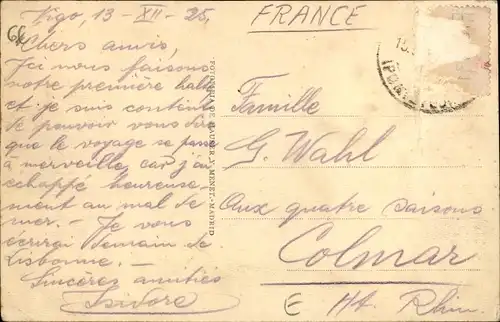 Vigo, 13 - XII - 25.
Chers amis,
Ici nous faisons
notre première halte
et je suis contente
de pouvoir vous dire
que le voyage se passe
à merveille, car j'ai
echappé heureuse-
ment au mal de
mer. - Je vous
écrirai demain de
Lisbonne. -
Sincères amitiés
Isidore
66
FOTOTIPIA DE HAUSER Y MENET.-MADRID
FRANCE
Famille
G. Wahl
Aux quatre saisons
Colmar
E Ht. Rhin